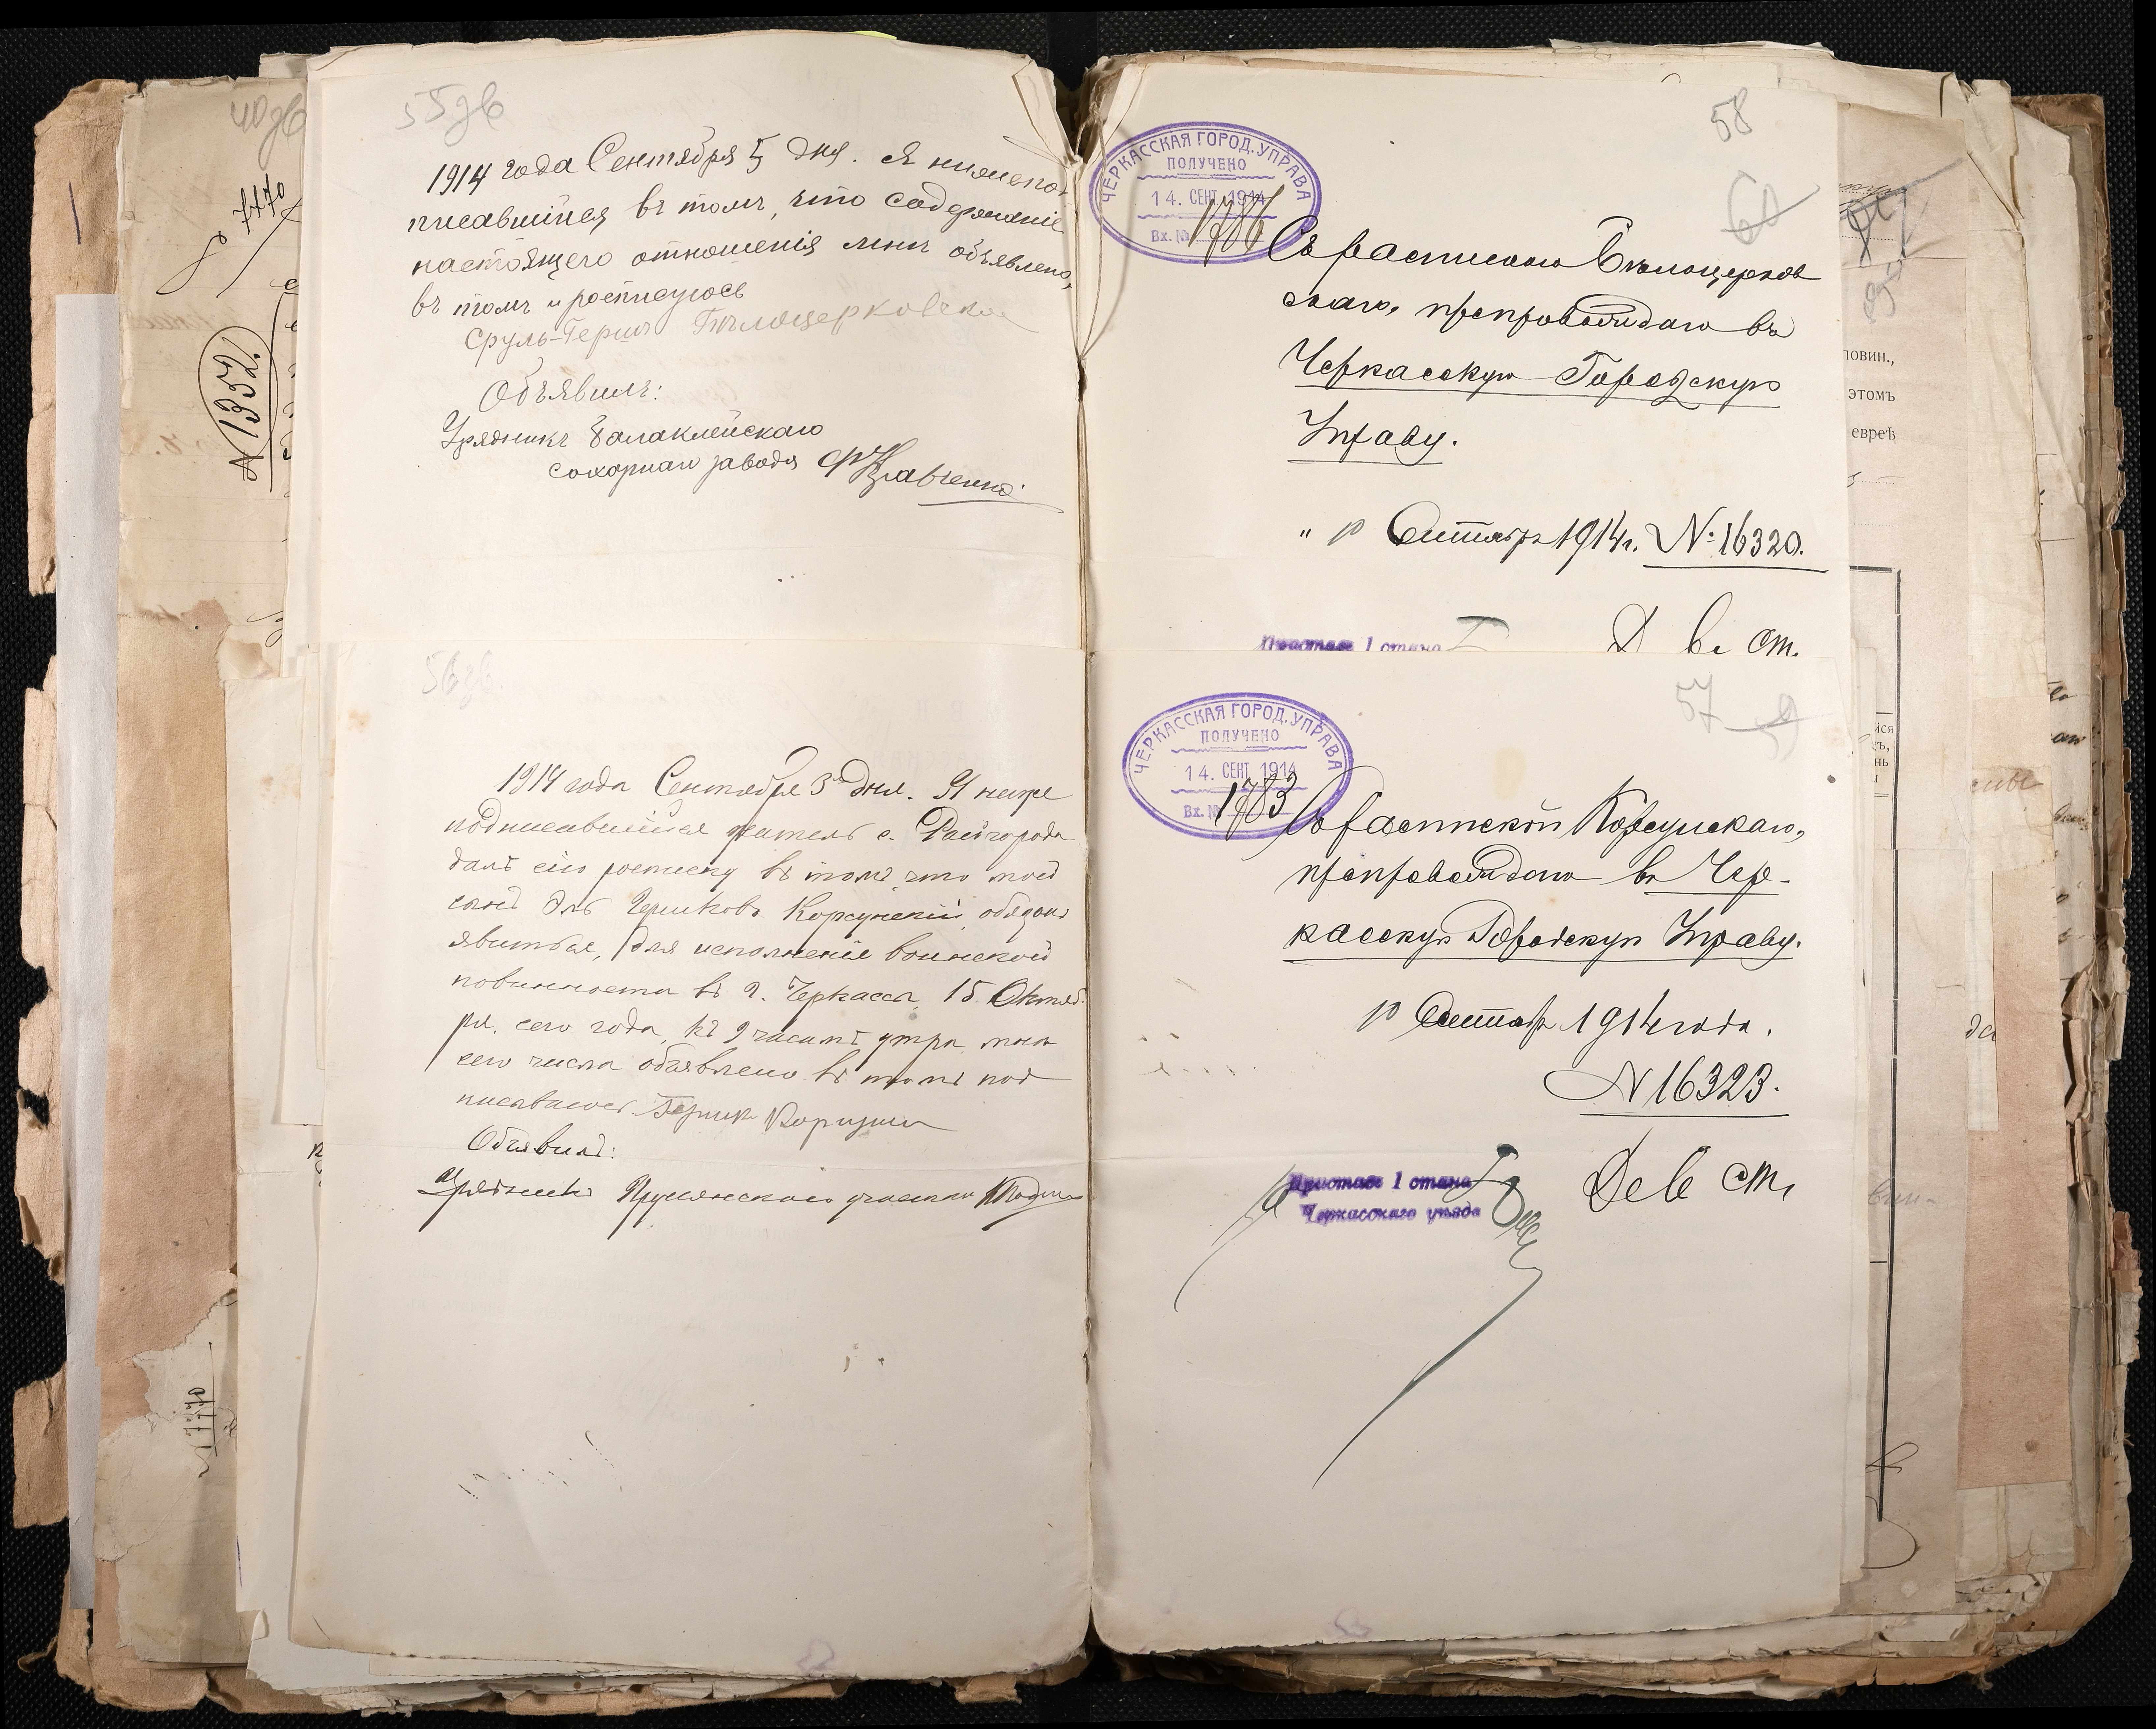 55об
1914 года Сентября 5 дня. Я нижепод
писавшійся въ томъ, что содержаніе
настоящего отношенія мнѣ объявлено,
въ томъ и росписуюсь
Сруль-Герш Бѣлоцерковски
Объявилъ:
Урядникъ Балаклейскаго
сахарнаго завода Кравченко
58
ЧЕРКАССКАЯ ГОРОД. УПРАВА
ПОЛУЧЕНО
14. СЕНТ. 1914
Вх. № 1786
Съ распискою Бѣлоцерков
скаго, препровождаю въ
Черкасскую Городскую
Управу.
" 10 Сентября 1914 г. № 16320.
Приставъ 1 стана
ст.
56об.
1914 года Сентября 3 дня. Я ниже
подписавшійся житель с. Райгорода
далъ сію росписку въ томъ, что мой
сынъ Эль Гершковъ Корсунскій, обязанъ
явиться, для исполненіе воинской
повинности въ г. Черкассы, 15 Октяб
ря, сего года, къ 9 часамъ утра, мнѣ
сего числа объявлено въ томъ под
писываюсь. Гершк
Объявилъ:
Урядникъ участка
57
ЧЕРКАССКАЯ ГОРОД. УПРАВА
ПОЛУЧЕНО
14. СЕНТ. 1914
Вх. № 1783
Съ роспиской Корсунскаго,
препровождаю въ Чер-
касскую Городскую Управу.
10 Сентября 1914 года.
№ 16323.
Приставъ 1 стана
Черкасскаго уѣзда
ст.
40об
7770
№ 1352.
ловин.,
этомъ
еврѣ